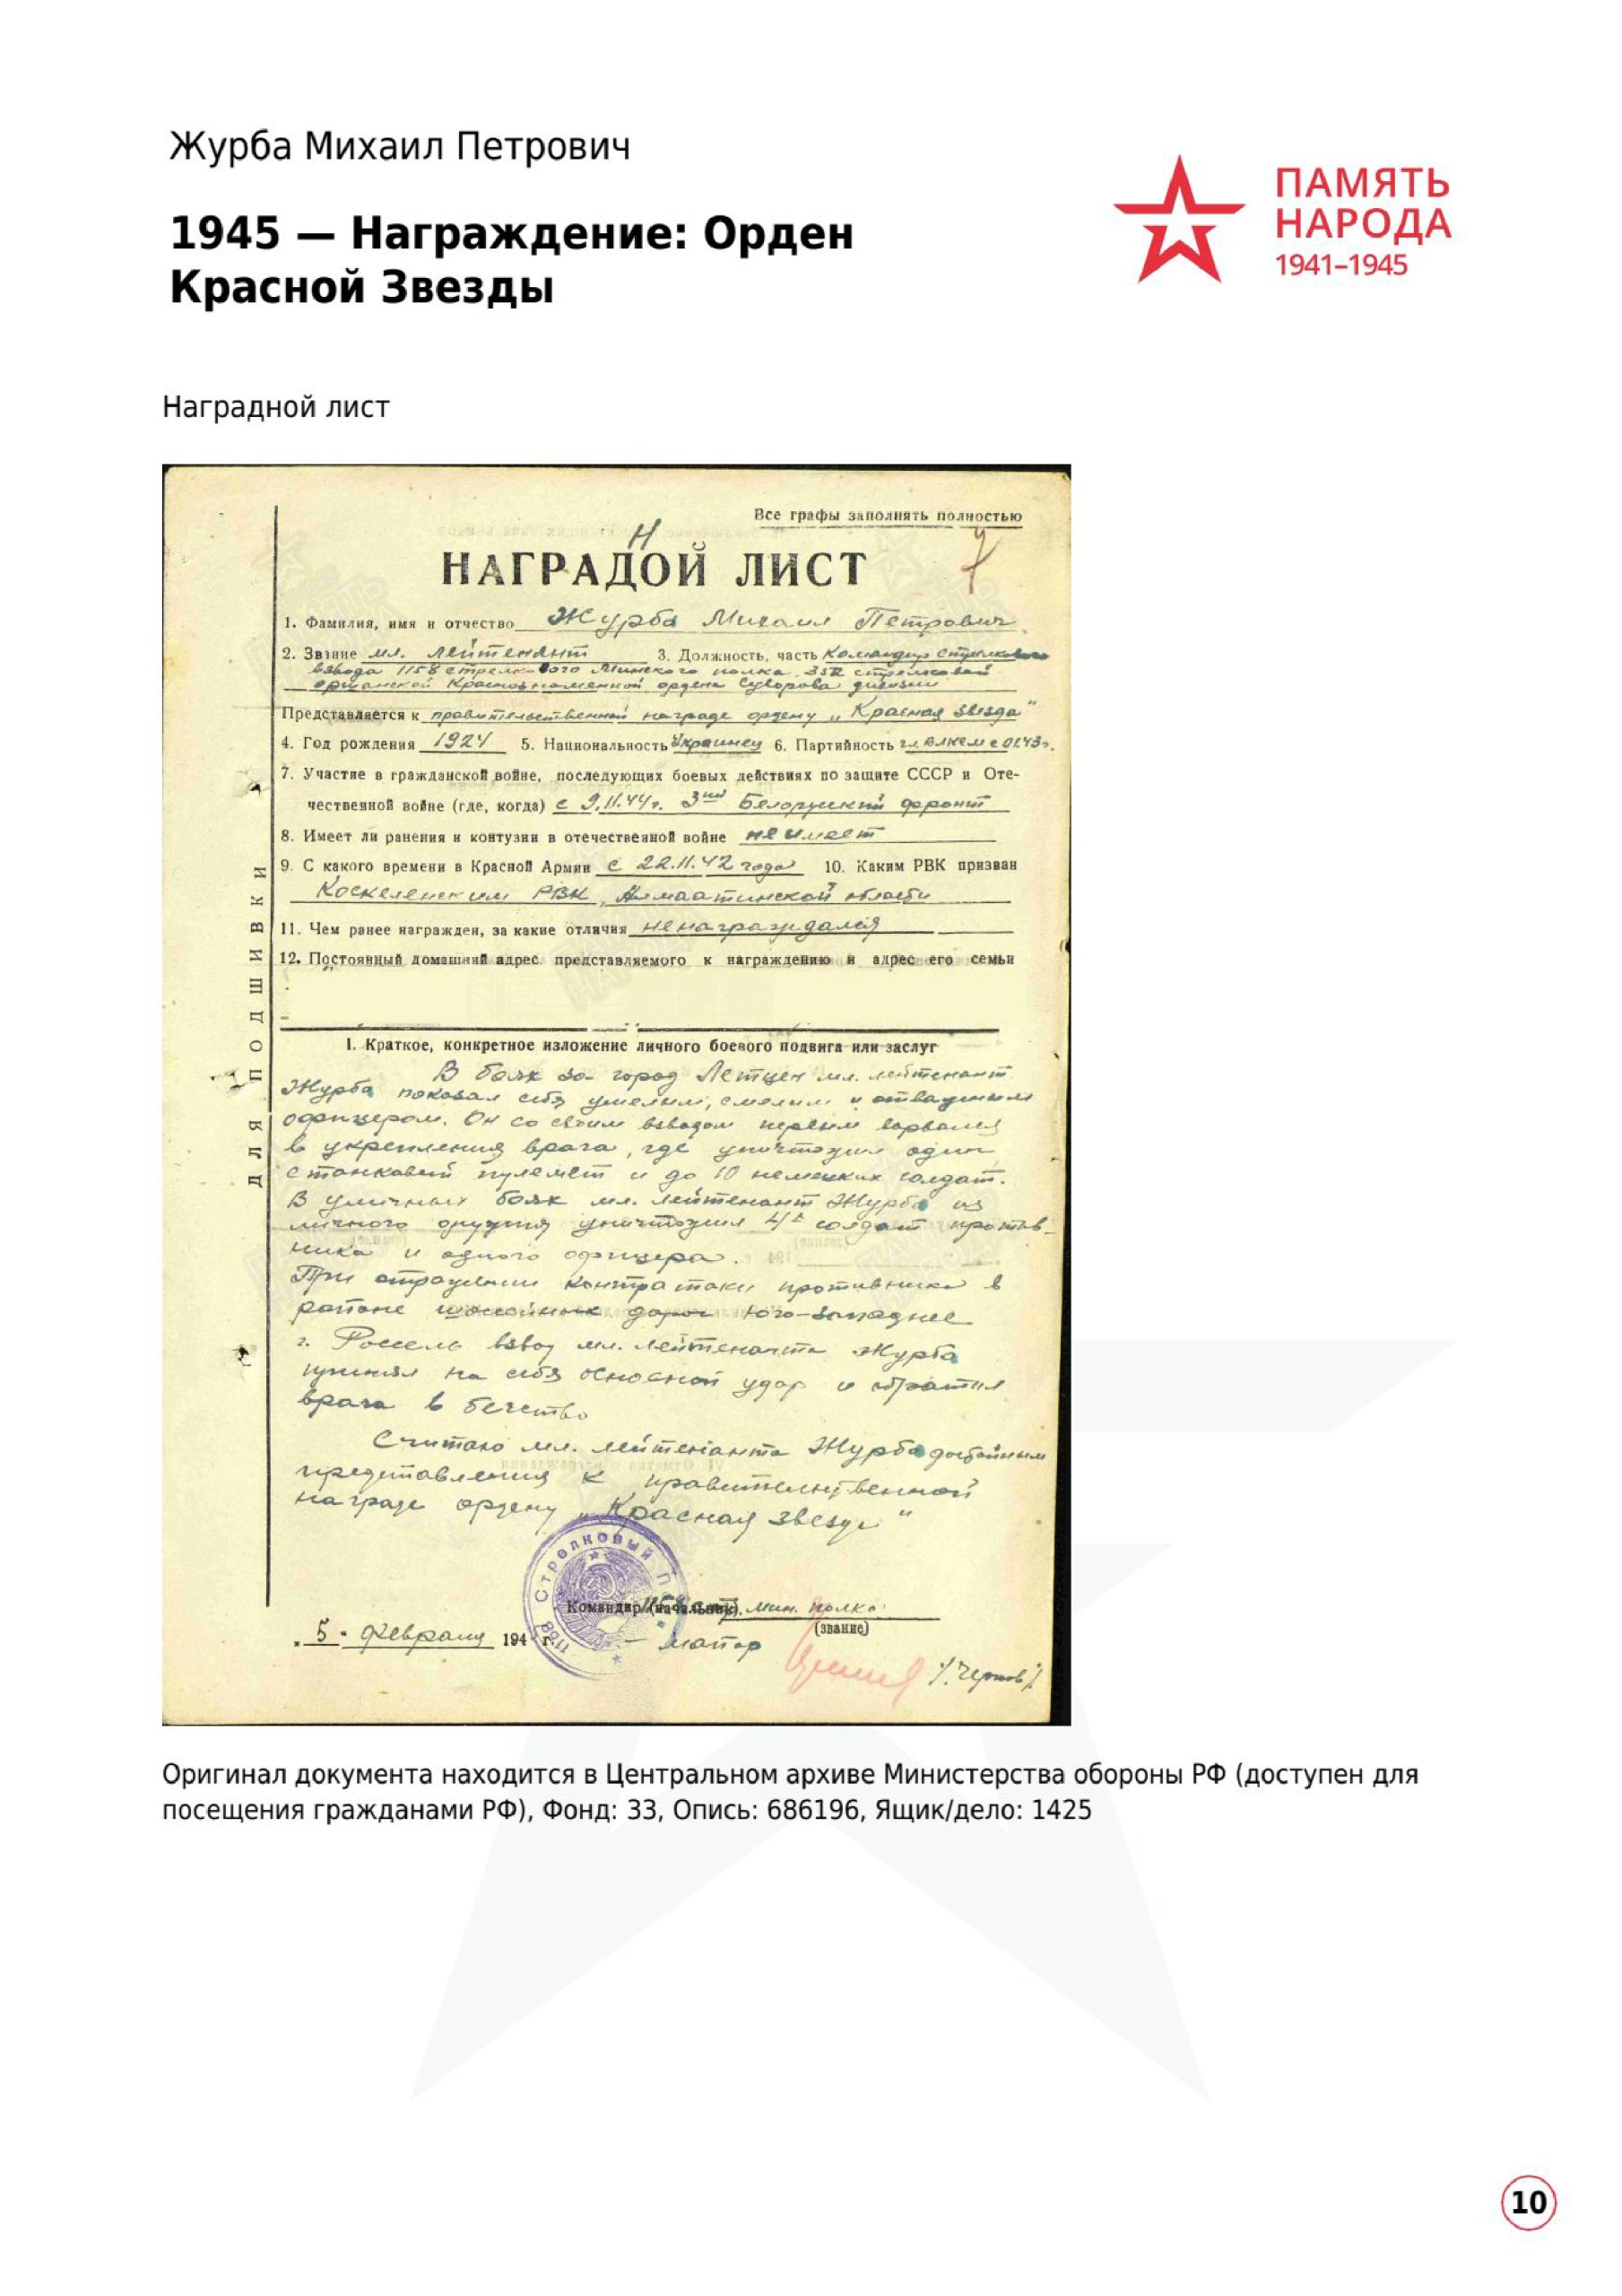 Журба Михаил Петрович
1945 — Награждение: Орден
Красной Звезды
ПАМЯТЬ
НАРОДА
1941–1945
Наградной лист
Все графы заполнять полностью
Н
7
НАГРАДОЙ ЛИСТ
1. Фамилия, имя и отчество Журба Михаил Петрович
2. Звание мл. лейтенант 3. Должность, часть Командир стрелкового
взвода 1158 стрелкового Минского полка, 352 стрелковой
оршанской Краснознаменной ордена Суворова дивизии
Представляется к правительственной награде ордену „Красная Звезда"
4. Год рождения 1924 5. Национальность Украинец 6. Партийность чл. ВЛКСМ с 01.43г.
7. Участие в гражданской войне, последующих боевых действиях по защите СССР и Оте-
чественной войне (где, когда) с 9.11.44г. 3ий Белорусский фронт
8. Имеет ли ранения и контузии в отечественной войне не имеет
9. С какого времени в Красной Армии с 22.11.42 года 10. Каким РВК призван
Коскеленским РВК, Алмаатинской области
11. Чем ранее награжден, за какие отличия не награждался
12. Постоянный домашний адрес представляемого к награждению и адрес его семьи
ДЛЯ ПОДШИВКИ
I. Краткое, конкретное изложение личного боевого подвига или заслуг
В боях за город Летцен мл. лейтенант
Журба показал себя умелым, смелым и отважным
офицером. Он со своим взводом первым ворвался
в укрепления врага, где уничтожил один
станковый пулемет и до 10 немецких солдат.
В уличных боях мл. лейтенант Журба из
личного оружия уничтожил 4х солдат против-
ника и одного офицера.
При отражении контратаки противника в
районе шоссейных дорог Юго-Западнее
г. Россель взвод мл. лейтенанта Журба
принял на себя основной удар и обратил
врага в бегство
Считаю мл. лейтенанта Журба достойным
представления к правительственной
награде ордену „Красная Звезда"
1158 Стрелковый П
Командир (начальник) мин. полка
(звание)
„5" февраля 194 г. майор
/Чернов/
Оригинал документа находится в Центральном архиве Министерства обороны РФ (доступен для
посещения гражданами РФ), Фонд: 33, Опись: 686196, Ящик/дело: 1425
10